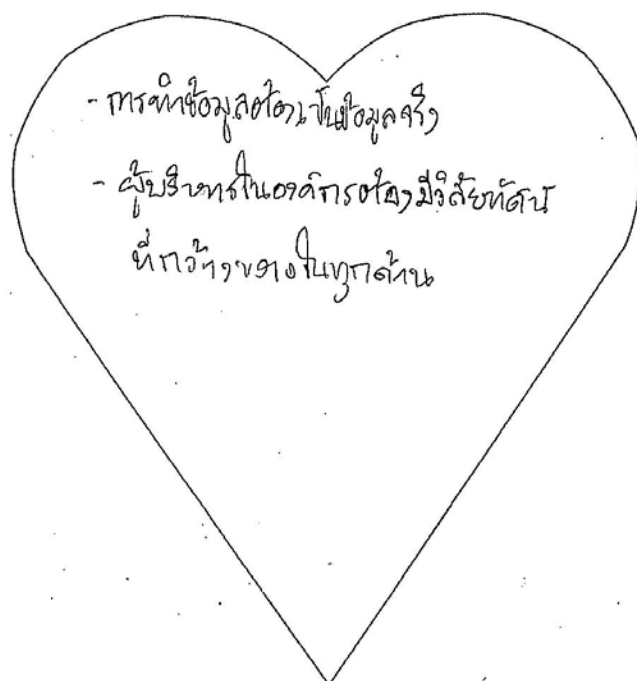 - การทำข้อมูลต้องเป็นข้อมูลจริง
- ผู้บริหารในองค์กรต้องมีวิสัยทัศน์
ที่กว้างขวางในทุกด้าน